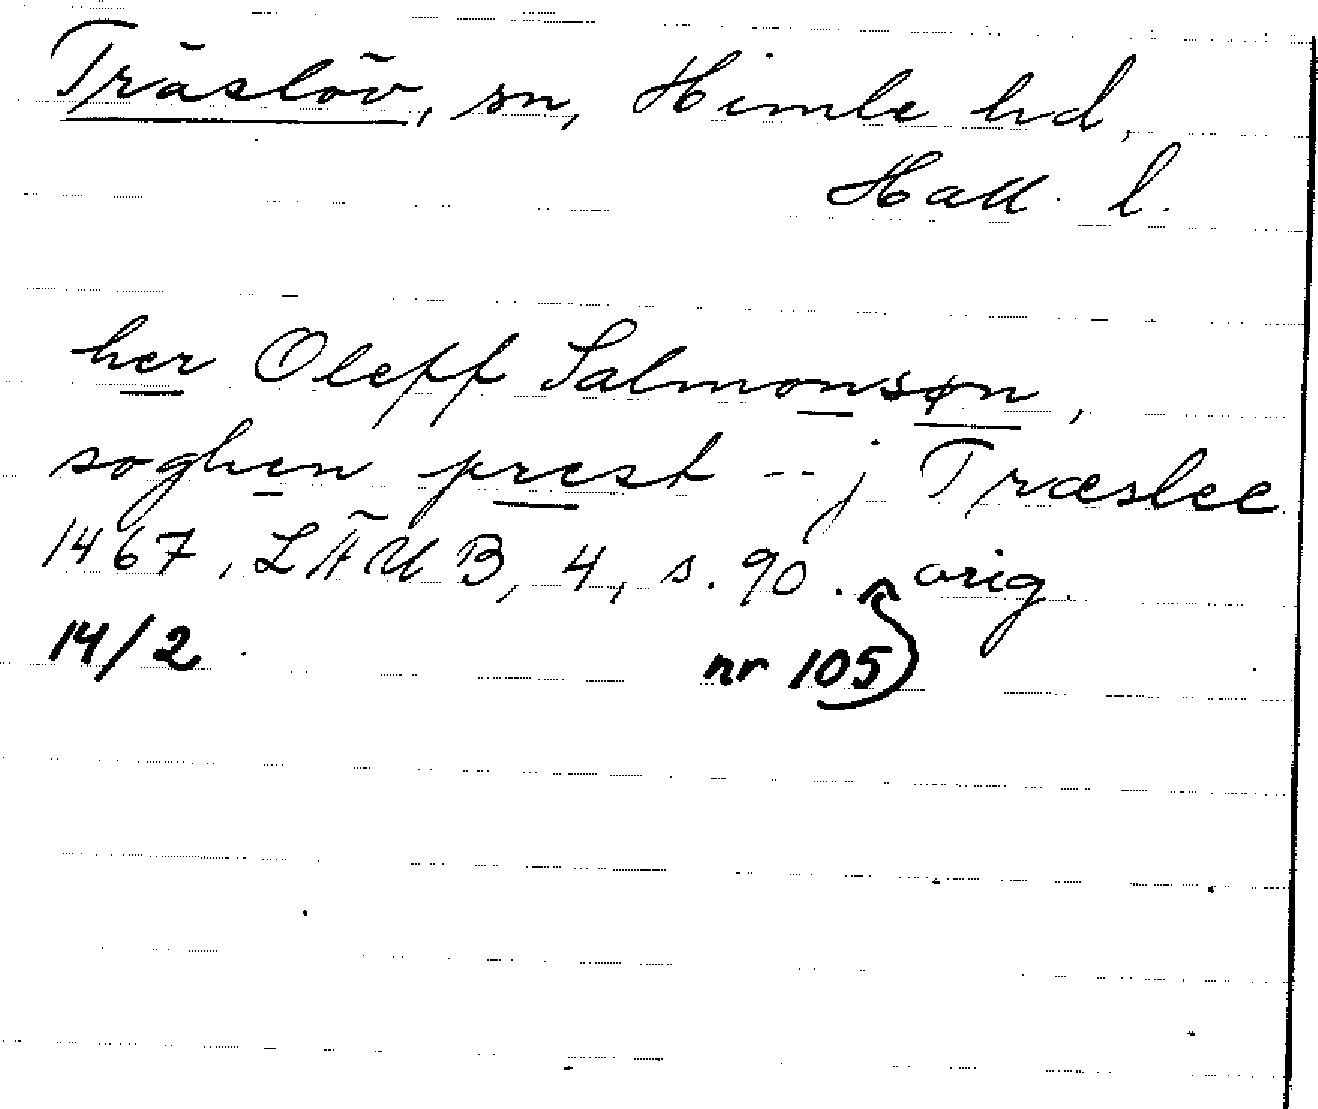 Träslöv, sn, Himle hd,
Hall. l.
her Oleff Salmonsøn,
soghen prest -- j Træslee
1467, LÄUB, 4, s. 90. orig.
14/2 nr 105